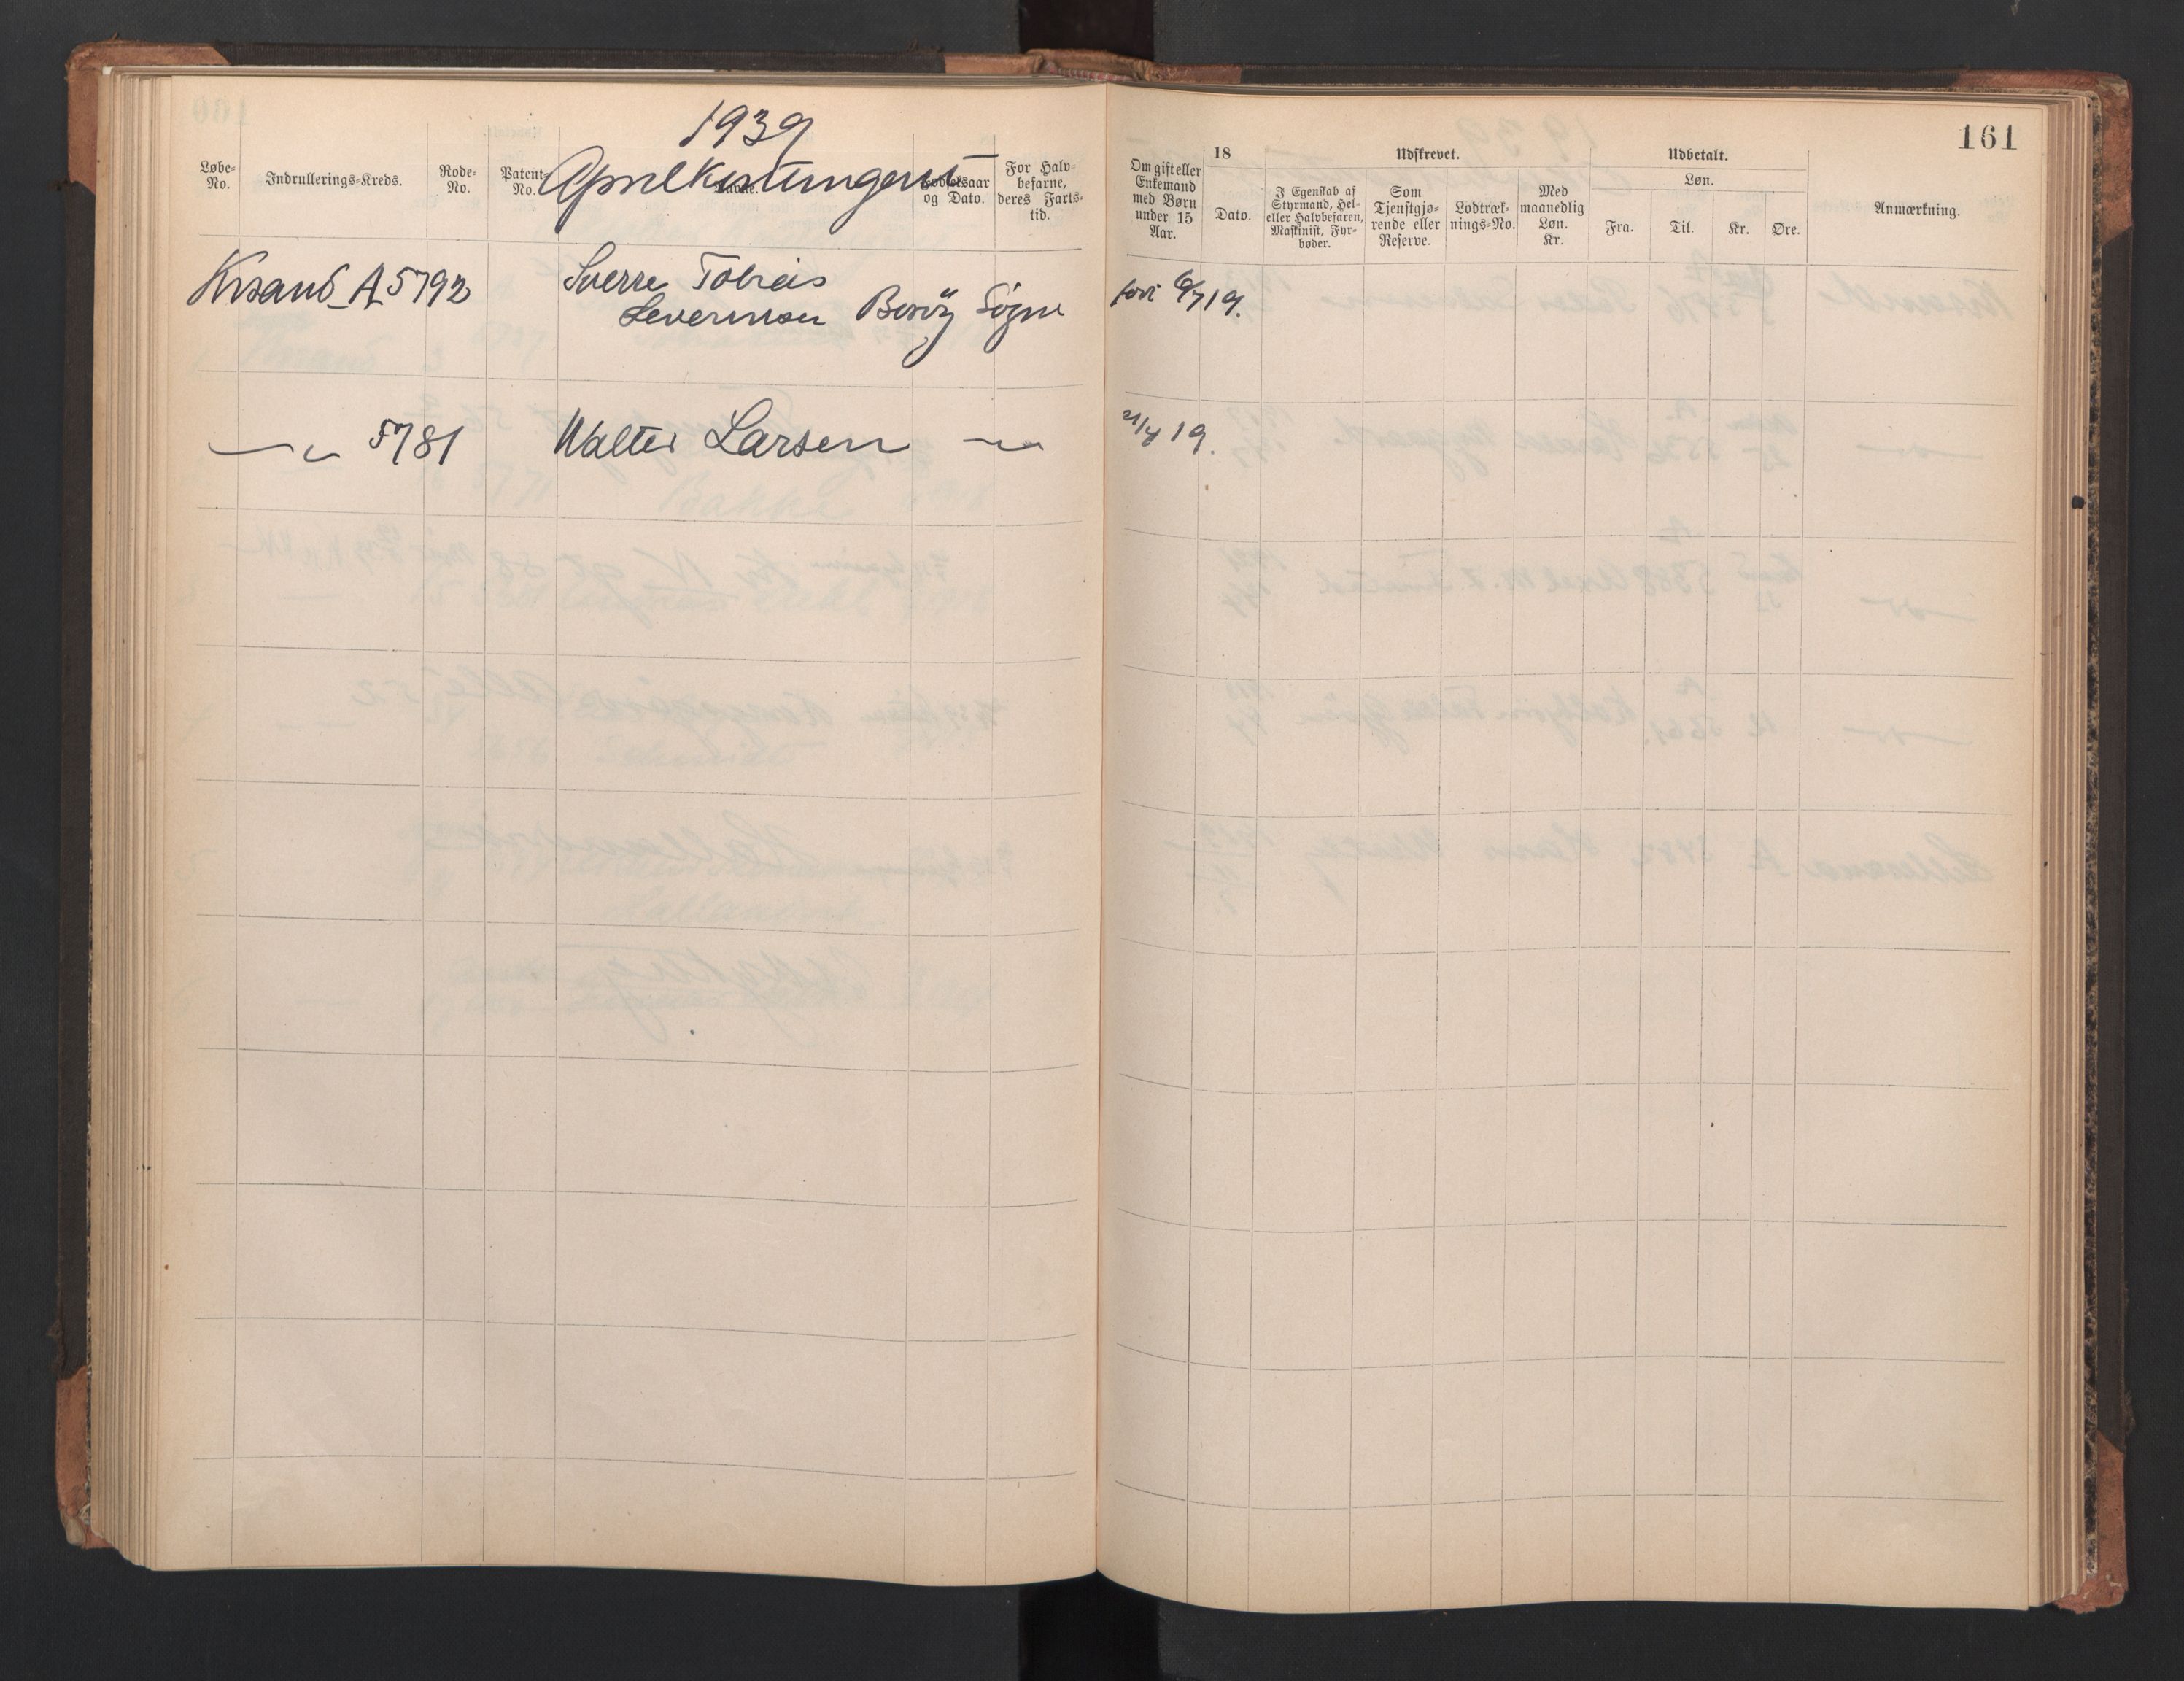 161
1939
Aprilkontingent
Løbe-No.
Indrullerings-Kreds.
Rode-No.
Patent-No.
Navne.
Fødselsaar og Dato.
For Halvbefarne, deres Farts-tid.
Om gift eller Enkemand med Børn under 15 Aar.
18
Dato.
Udskrevet.
I Egenskab af Styrmand, Hel- eller Halvbefaren, Maskinist, Fyr-bøder.
Som Tjenstgjø-rende eller Reserve.
Lodtræk-nings-No.
Med maanedlig Løn. Kr.
Udbetalt.
Løn.
Fra.
Til.
Kr.
Øre.
Anmærkning.
Krsand A 5792 Sverre Tobias
Severinsen Borøy Søgne 6/7 19.
— " — 5781 Walter Larsen — " — 21/4 19.